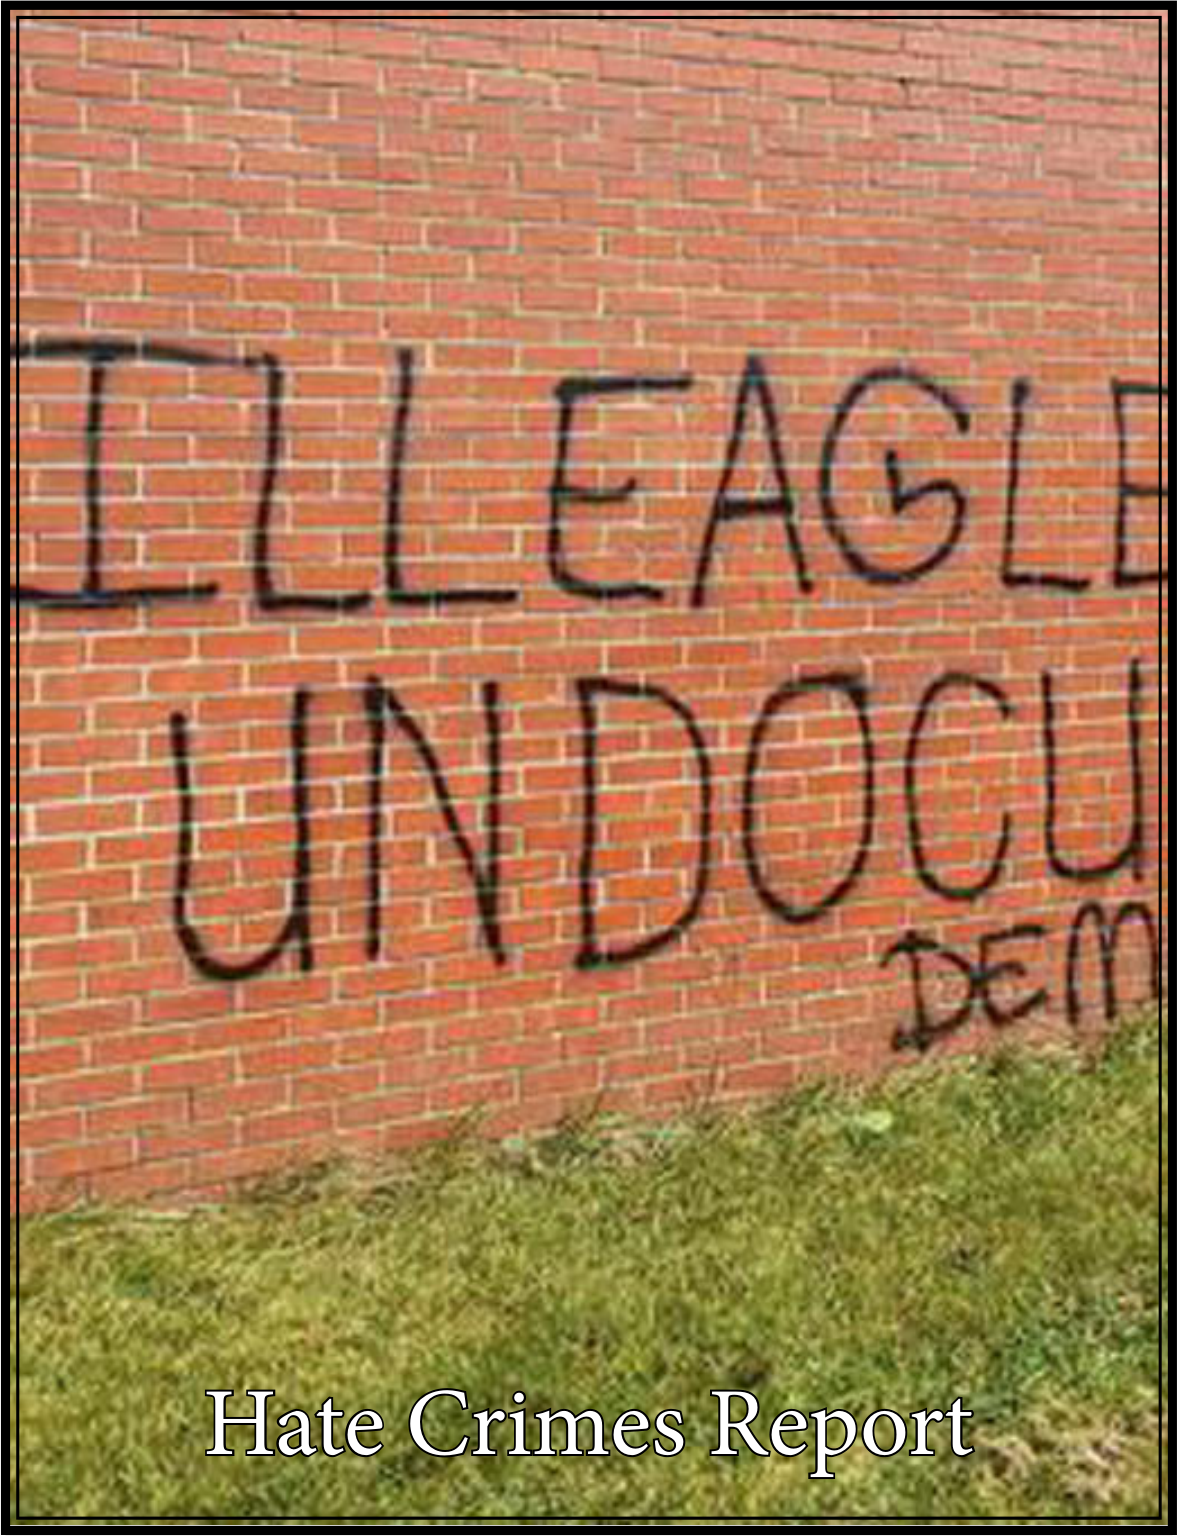 ILLEAGLE
UNDOCU
DEM
Hate Crimes Report